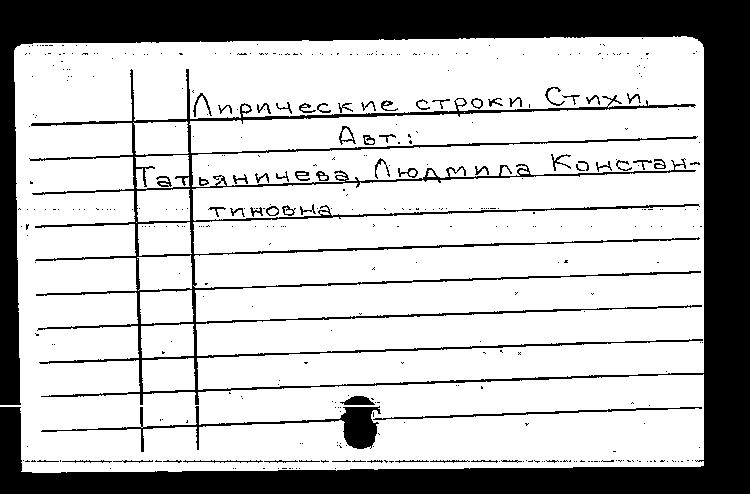 Лирические строки. Стихи.
Авт.:
Татьяничева, Людмила Констан-
тиновна